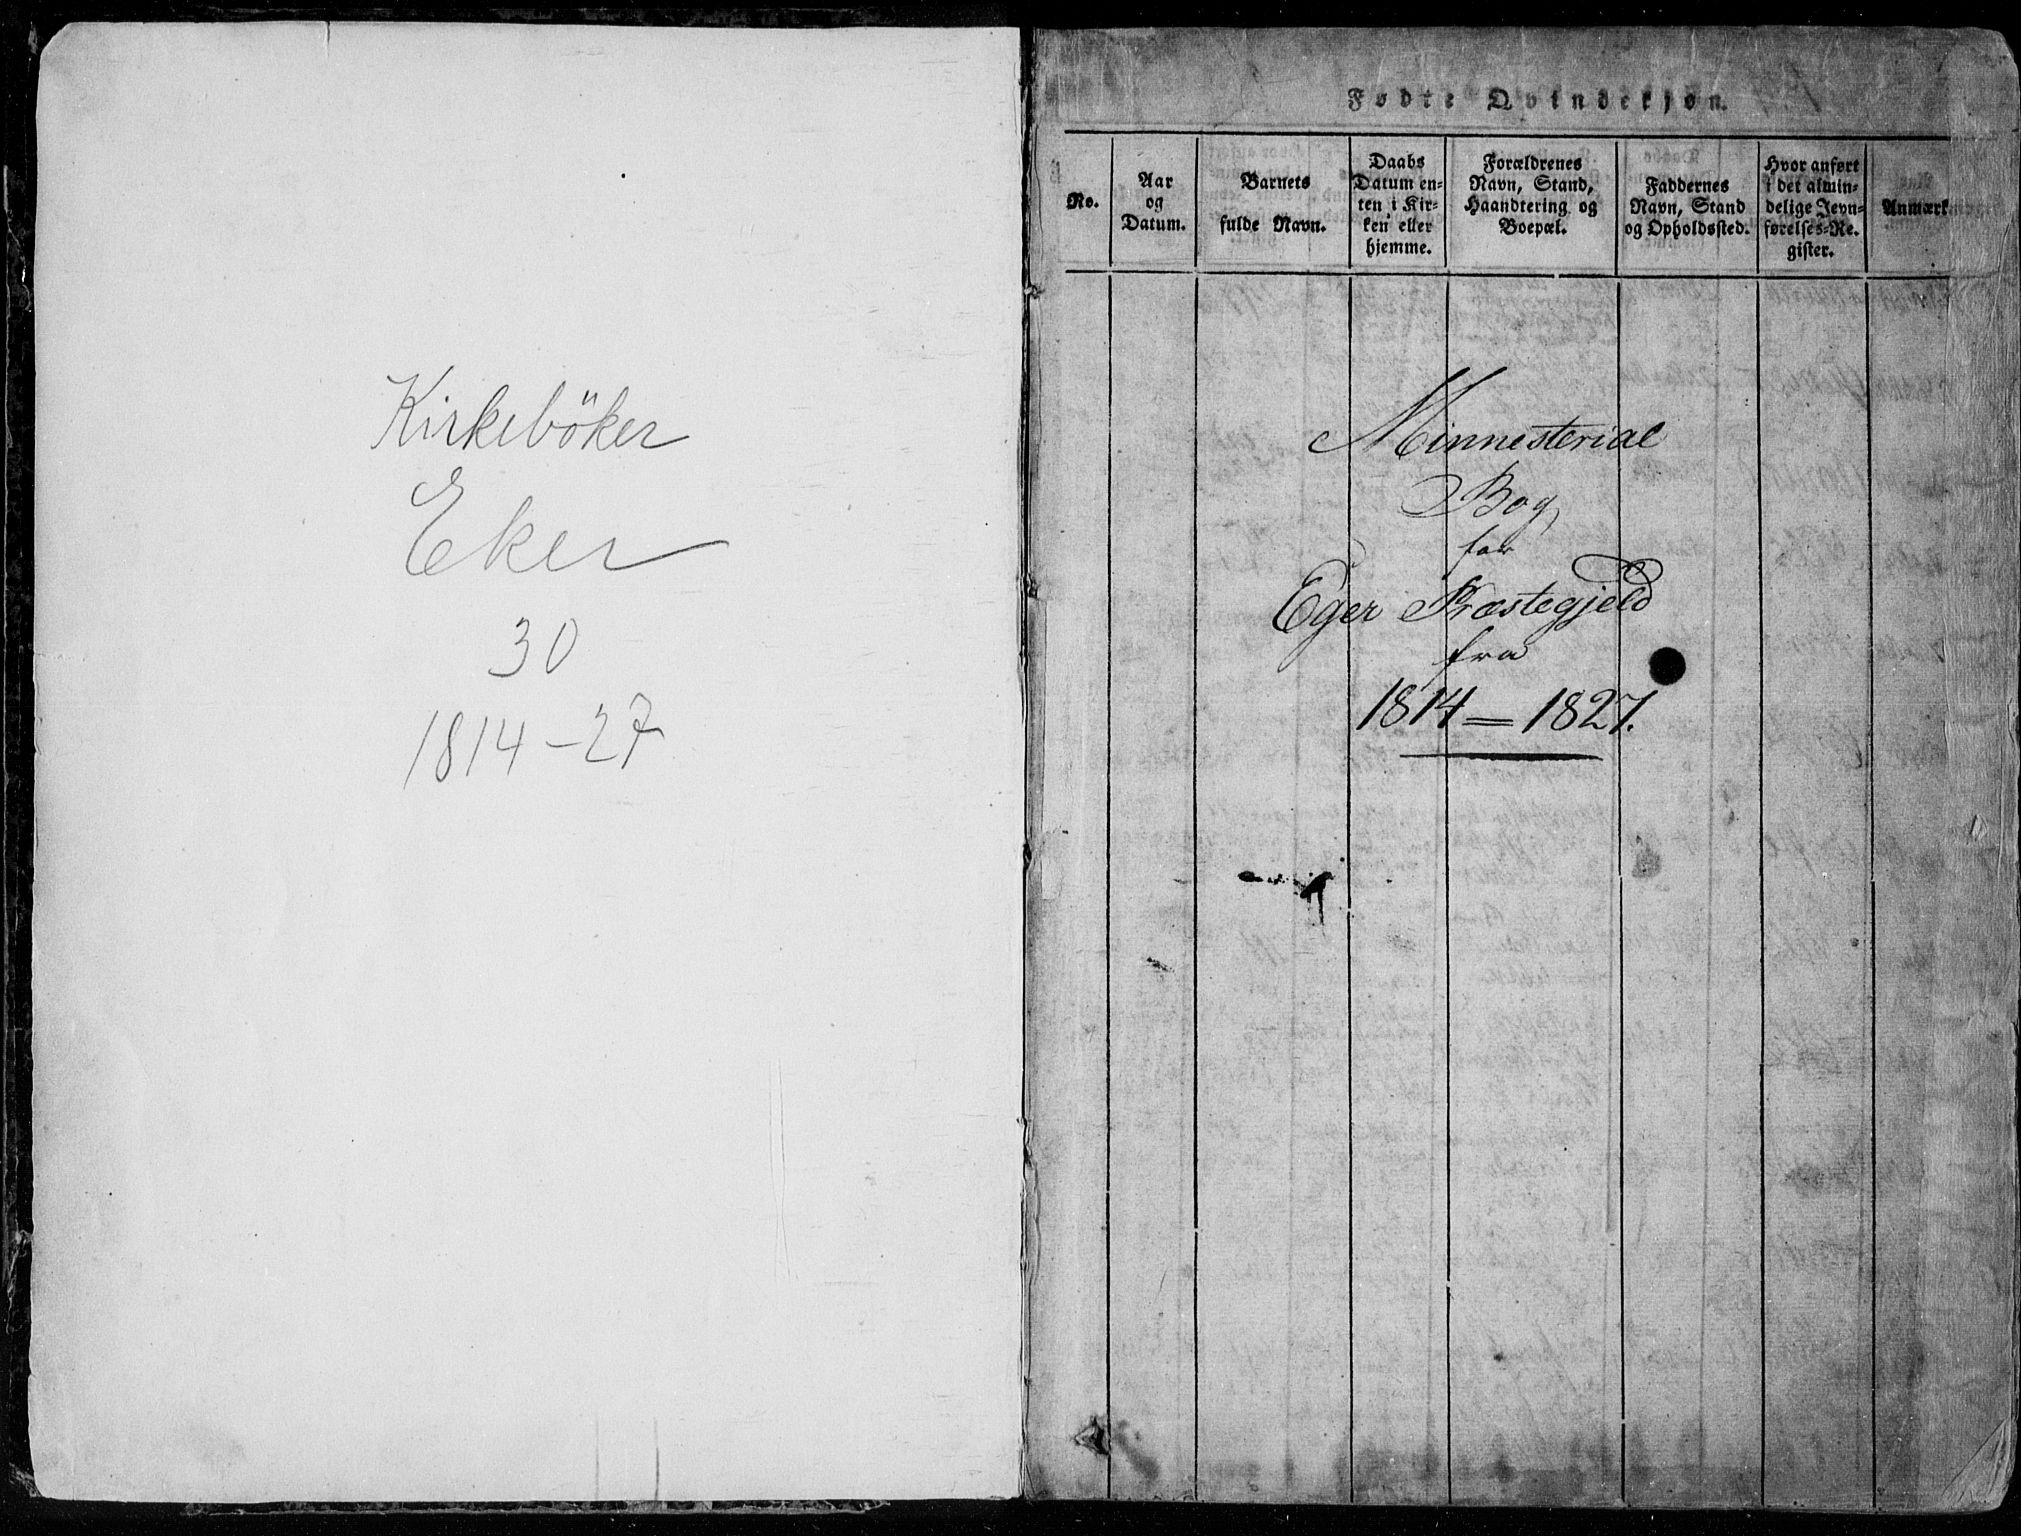 Kirkeböker
Eker
30
1814-27
Fødte Qvindekjøn.
No.
Aar
og
Datum.
Barnets
fulde Navn.
Daabs
Datum en-
ten i Kir-
ken eller
hjemme.
Forældrenes
Navn, Stand,
Haandtering og
Boepæl.
Faddernes
Navn, Stand
og Opholdssted.
Hvor anført
i det almin-
delige Jevn-
førelses-Re-
gister.
Anmærk
Minnesterial
Bog
for
Eger Præstegjeld
fra
1814 = 1827.